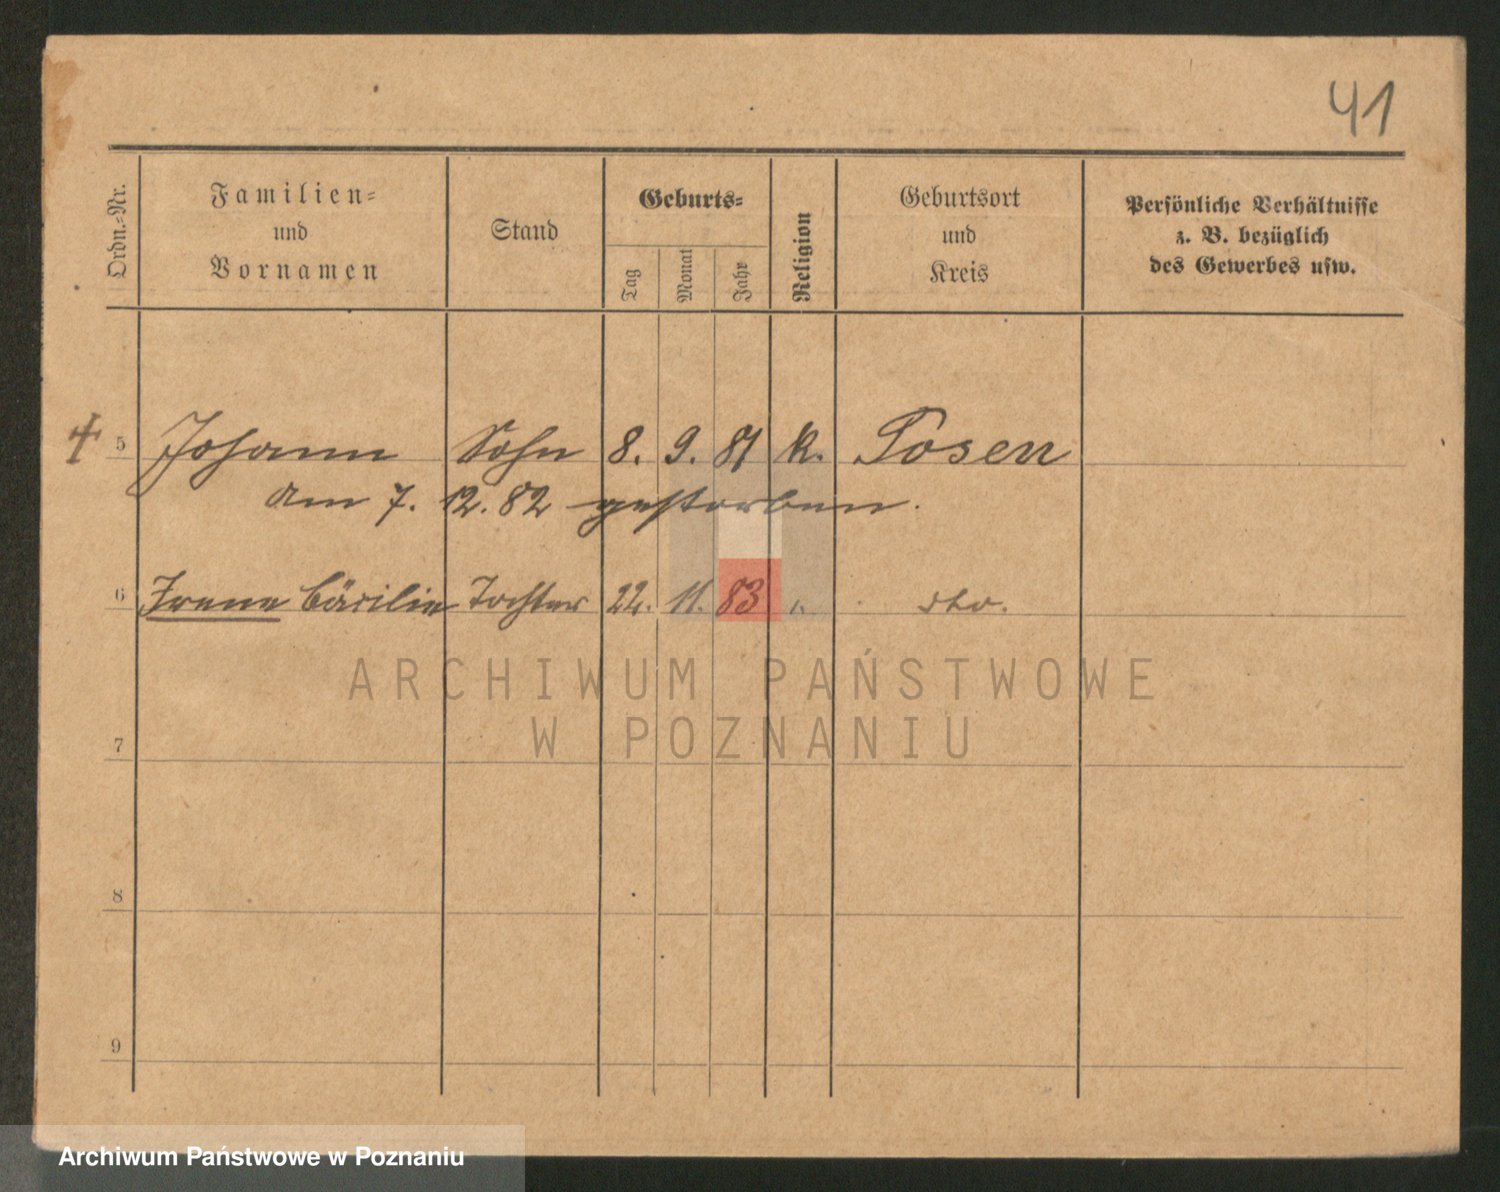 41
Ordn.-Nr.
Familien-
und
Vornamen
Stand
Geburts-
Tag
Monat
Jahr
Religion
Geburtsort
und
Kreis
Persönliche Verhältnisse
z. B. bezüglich
des Gewerbes usw.
5 Johann Sohn 8. 9. 81 k. Posen
am 7. 12. 82 gestorben.
6 Irene Cäcilie Tochter 22. 11. 83 " dto.
7
8
9
ARCHIWUM PAŃSTWOWE
W POZNANIU
Archiwum Państwowe w Poznaniu